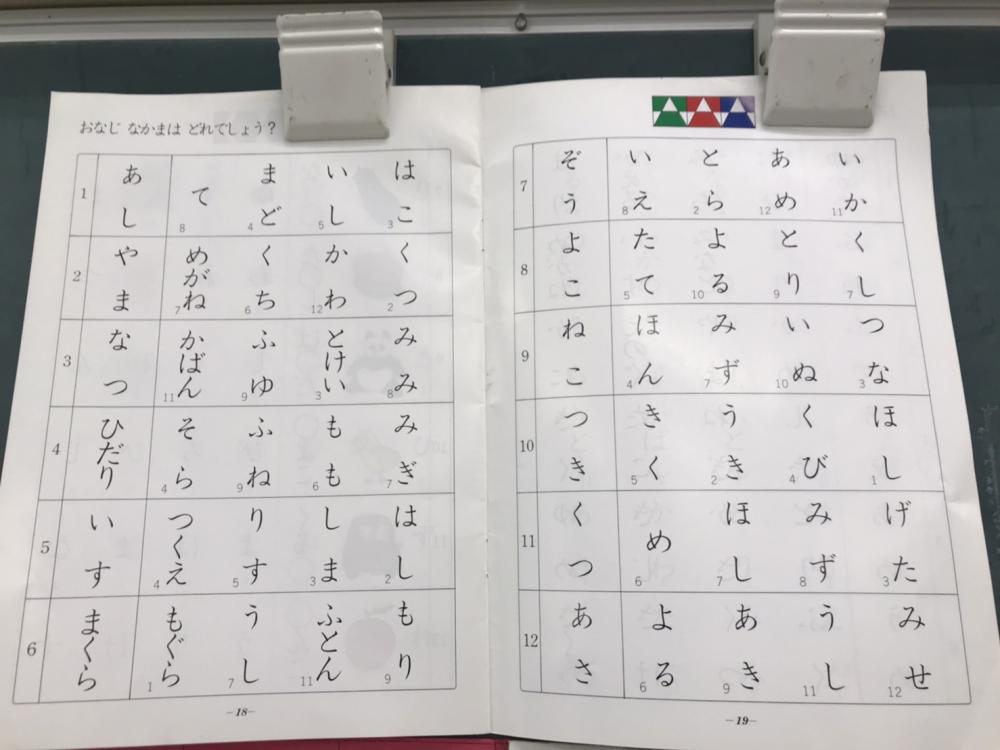 おなじ なかまは どれでしょう？
1 あし て 8 まど 4 いし 5 はこ 3
2 やま めがね 7 くち 6 かわ 12 くつ 2
3 なつ かばん 11 ふゆ 9 とけい 3 みみ 8
4 ひだり そら 4 ふね 9 もも 6 みぎ 7
5 いす つくえ 4 りす 5 しま 3 はし 2
6 まくら もぐら 1 うし 7 ふとん 11 もり 9
—18—
7 ぞう いえ 8 とら 2 あめ 12 いか 11
8 よこ たて 5 よる 10 とり 9 くし 7
9 ねこ ほん 4 みず 7 いぬ 10 つな 3
10 つき きく 5 うき 2 くび 4 ほし 1
11 くつ め 6 ほし 7 みず 8 げた 3
12 あさ よる 6 あき 9 うし 11 みせ 12
—19—